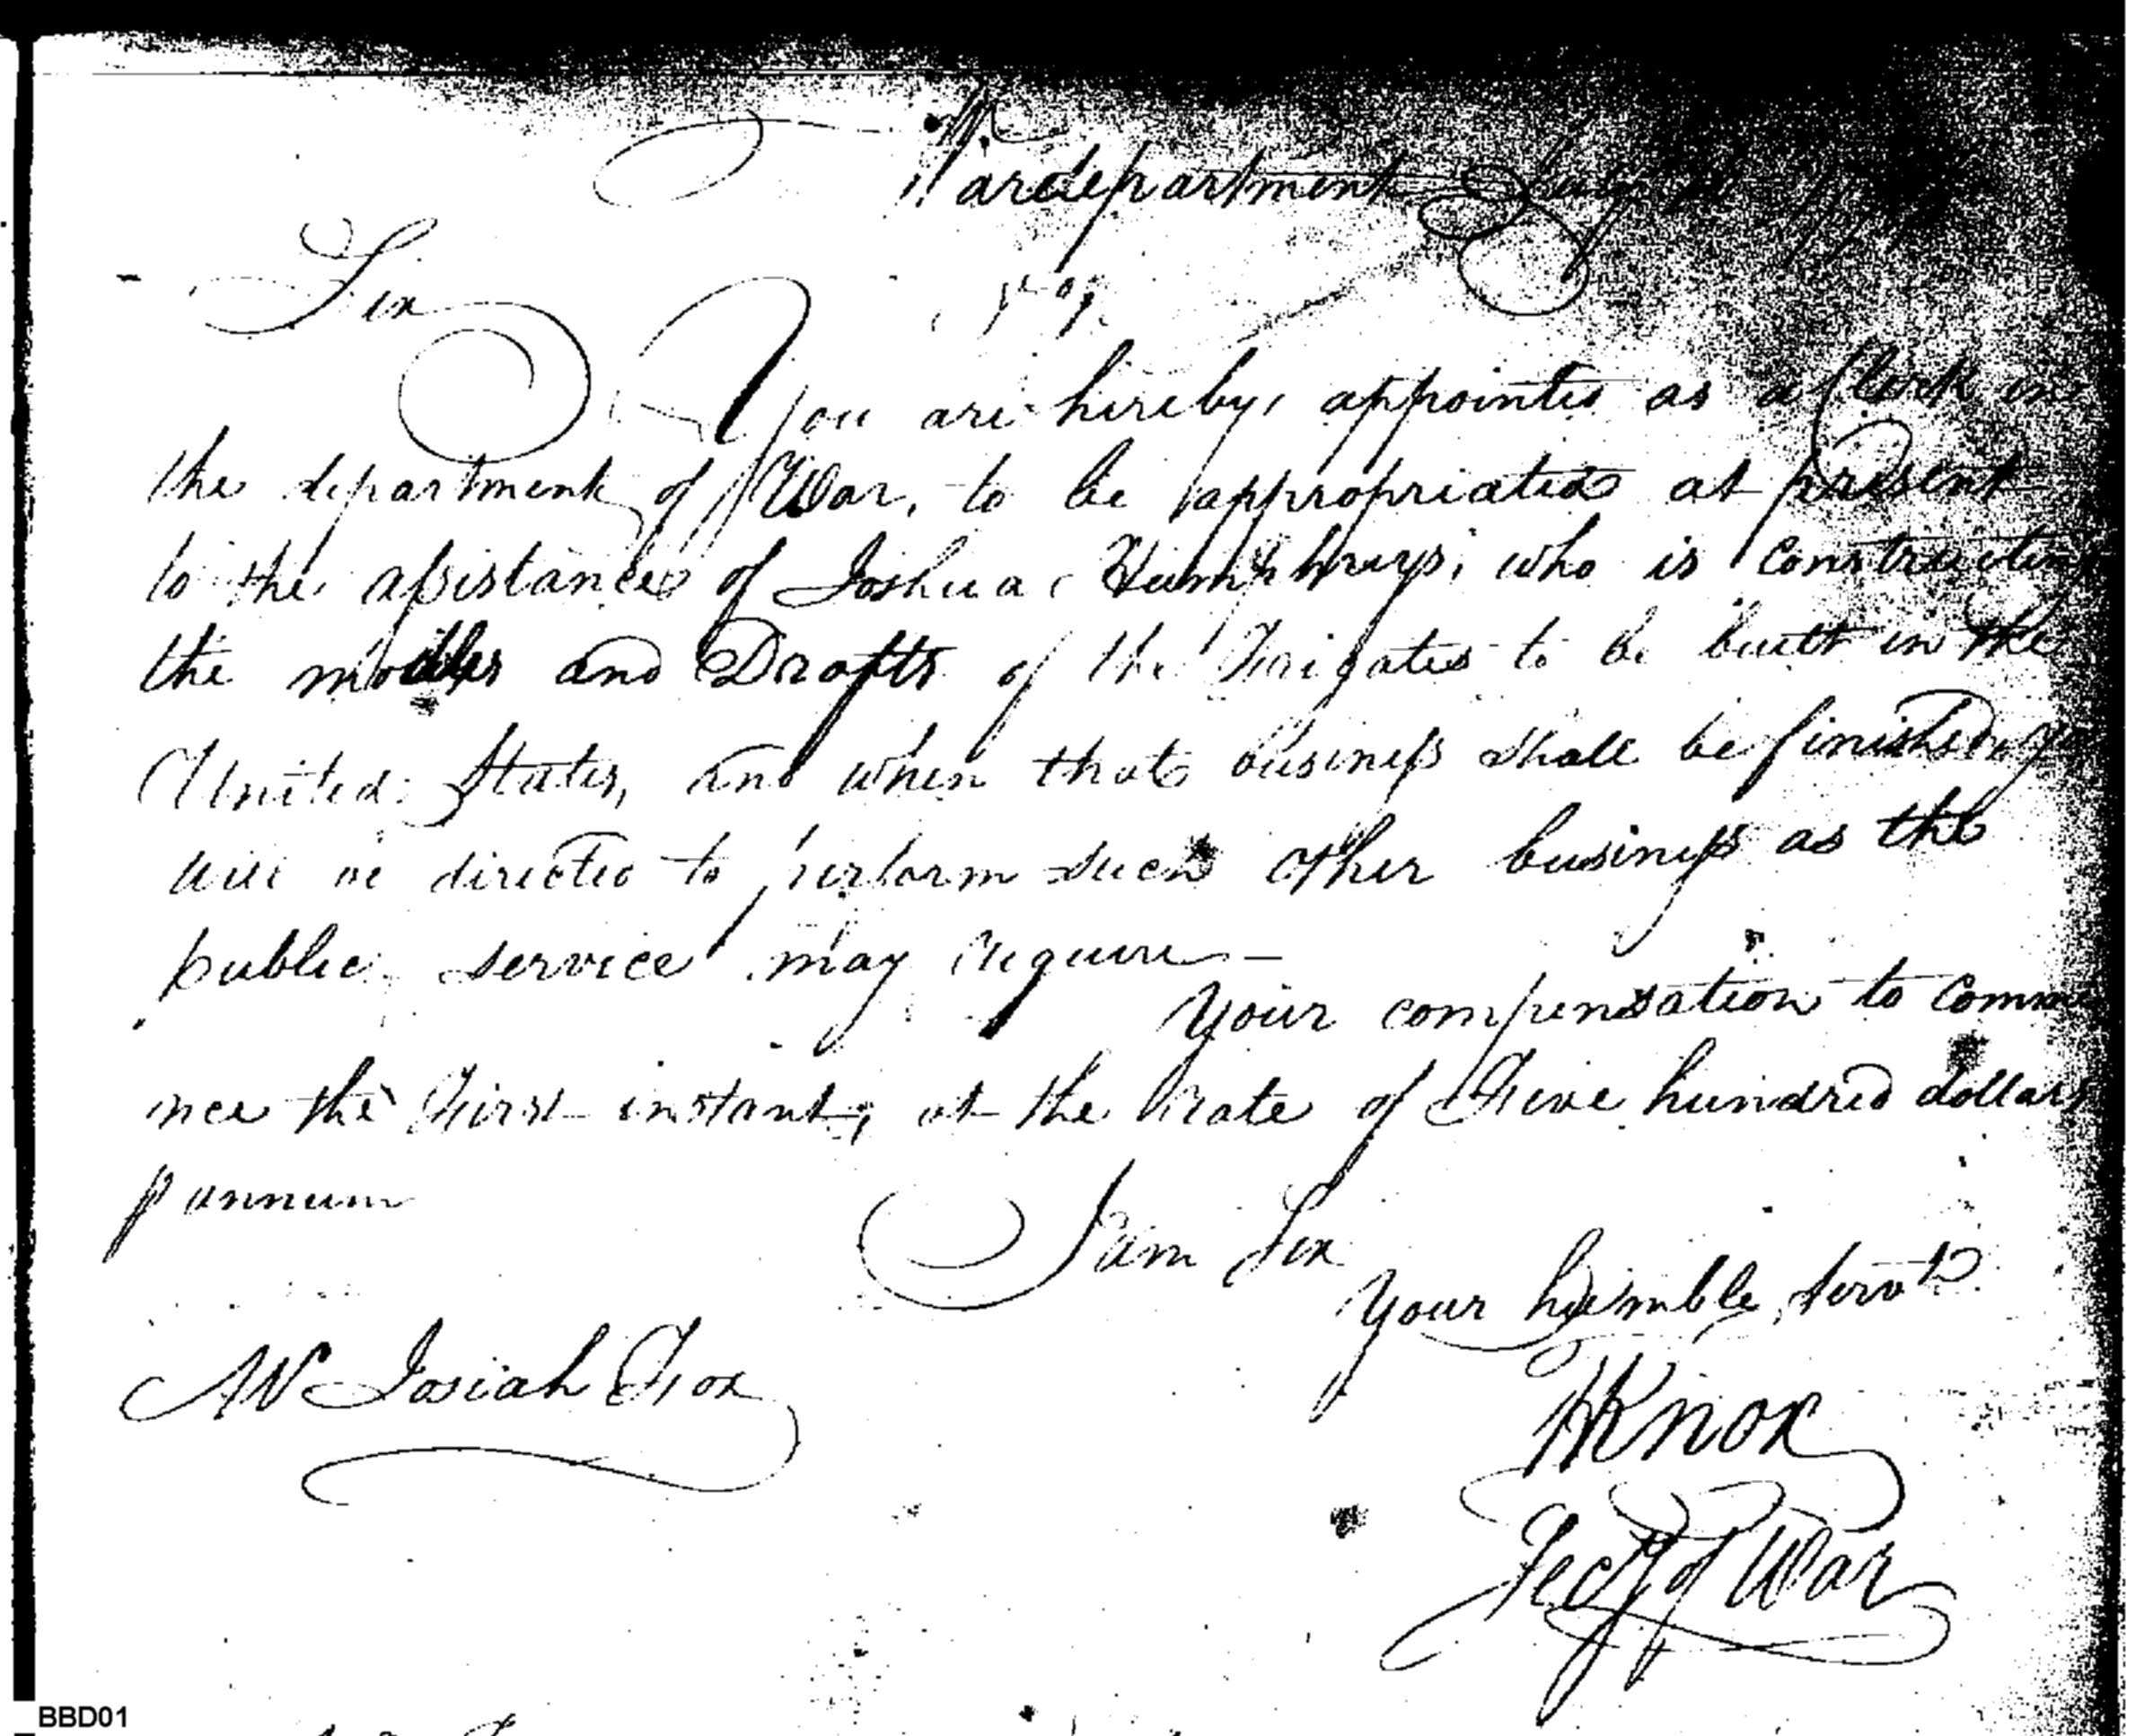 War department July
Sir
You are hereby appointed as a Clerk in
the department of War, to be appropriated at present
to the assistance of Joshua Humphreys, who is constructing
the modles and Drafts of the Frigates to be built in the
United States, and when that business shall be finished you
will be directed to perform such other business as the
public service may require —
Your compensation to comme
nce the First instant, at the Rate of Five hundred dollars
p annum
I am Sir
Your humble Servt
Mr Josiah Fox
HKnox
Secy of War
BBD01